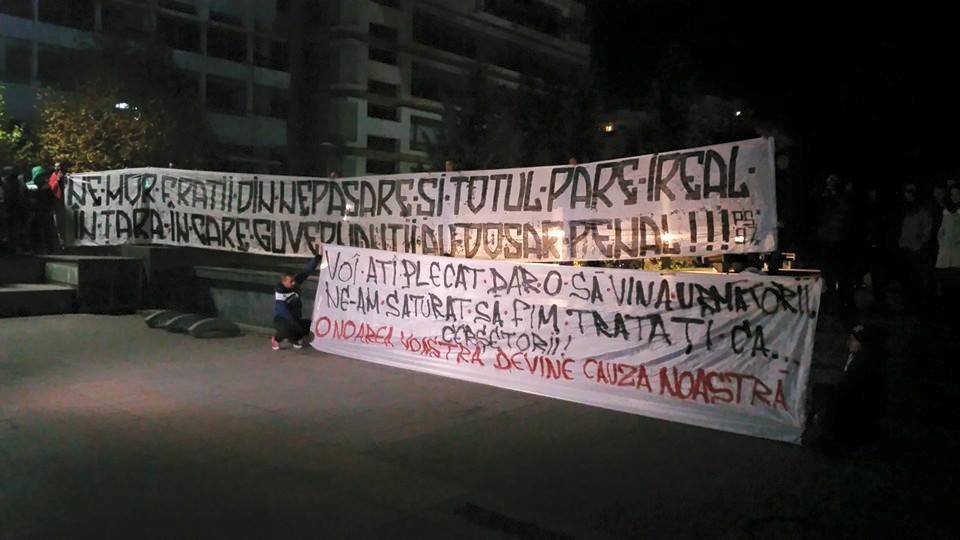 NE·MOR·FRATII·DIN·NEPASARE·SI·TOTUL·PARE·IREAL·
IN·TARA·ÎN·CARE·GUVERNANTII·AU·DOSAR·PENAL!!!
VOI·ATI·PLECAT·DAR·O·SĂ·VINA·URMATORII
NE-AM·SATURAT·SĂ·FIM·TRATAȚI·CA...
CERSETORII!
ONOAREA VOASTRĂ DEVINE CAUZA NOASTRĂ